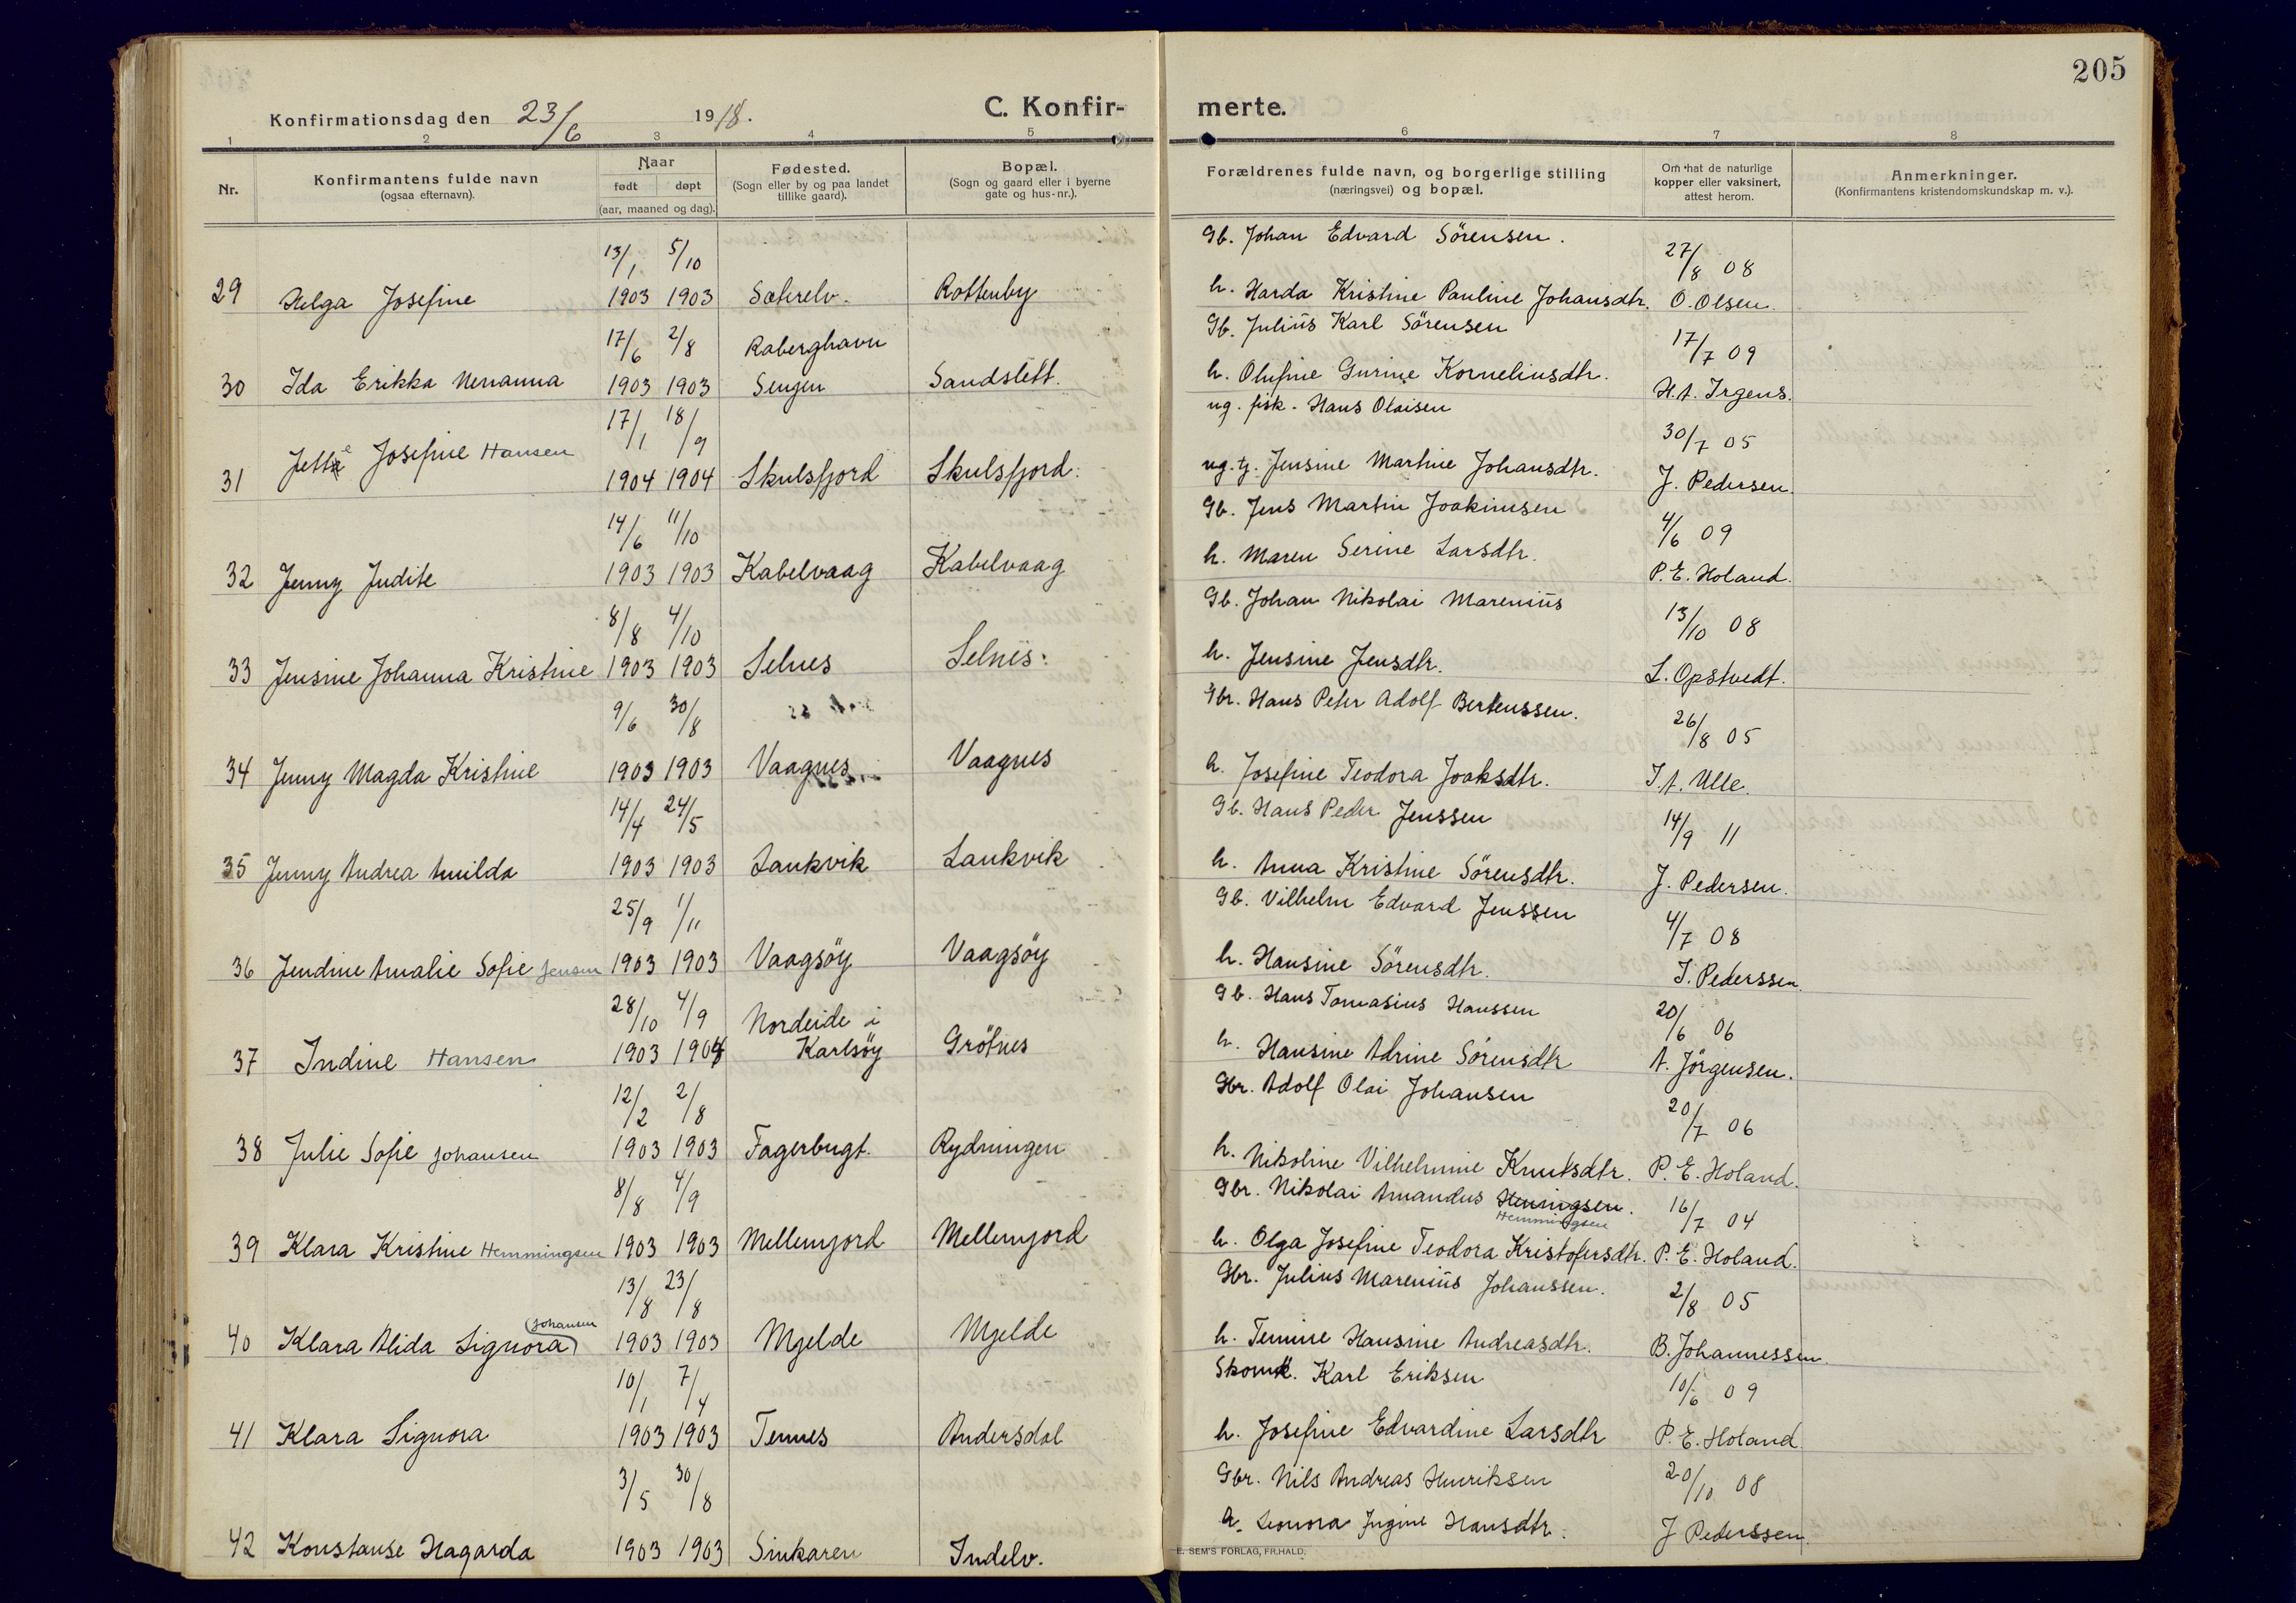 205
Konfirmationsdag den 23/6 1918.
C. Konfir-
merte.
1 2 3 4 5 6 7 8
Nr.
Konfirmantens fulde navn
(ogsaa efternavn).
Naar
født døpt
(aar, maaned og dag).
Fødested.
(Sogn eller by og paa landet
tillike gaard).
Bopæl.
(Sogn og gaard eller i byerne
gate og hus-nr.).
Forældrenes fulde navn, og borgerlige stilling
(næringsvei) og bopæl.
Om hat de naturlige
kopper eller vaksinert,
attest herom.
Anmerkninger.
(Konfirmantens kristendomskundskap m. v.).
13/1 5/10 Gb. Johan Edvard Sörensen. 27/8 08
29 Helga Josefine 1903 1903 Sæterelv. Rottenby h. Harda Kristine Pauline Johansdtr. O. Olsen.
17/6 2/8 Raberghavn Gb. Julius Karl Sörensen 17/7 09
30 Ida Erikka Nenanna 1903 1903 Senjen Sandslett. h. Olufine Gurine Korneliusdtr. H.A. Irgens.
17/1 18/9 ug. fisk. Hans Olaisen 30/7 05
31 Jette Josefine Hansen 1904 1904 Skulsfjord Skulsfjord. ug. tj. Jensine Martine Johansdtr. J. Pedersen.
14/6 11/10 Gb. Jens Martin Joakimsen 4/6 09
32 Jenny Judite 1903 1903 Kabelvaag Kabelvaag h. Maren Serine Larsdtr. P. E. Holand.
8/8 4/10 Gb. Johan Nikolai Marenius 13/10 08
33 Jensine Johanna Kristine 1903 1903 Selnes Selnes. h. Jensine Jensdtr. L. Opstvedt.
9/6 30/8 Gbr. Hans Peter Adolf Bertenssen. 26/8 05
34 Jenny Magda Kristine 1903 1903 Vaagnes Vaagnes h. Josefine Teodora Joaksdtr. I. A. Ulle.
14/4 24/5 Gb. Hans Peder Jenssen 14/9 11
35 Jenny Andrea Amilda 1903 1903 Lankvik Lankvik h. Anna Kristine Sörensdtr. J. Pedersen.
25/9 1/11 Gb. Vilhelm Edvard Jenssen 4/7 08
36 Jendine Amalie Sofie Jensen 1903 1903 Vaagsöy Vaagsöy h. Hansine Sörensdtr. I. Pederssen.
28/10 4/9 Nordeide i Gb. Hans Tomasius Hanssen 20/6 06
37 Indine Hansen 1903 1904 Karlsöy Grötnes h. Hansine Adrine Sörensdtr A. Jörgensen.
12/2 2/8 Gbr. Adolf Olai Johansen 20/7 06
38 Julie Sofie Johansen 1903 1903 Fagerbugt. Rydningen h. Nikoline Vilhelmine Knutsdtr. P. E. Holand.
8/8 4/9 Gbr. Nikolai Amandus Henningsen. 16/7 04
Hemmingsen
39 Klara Kristine Hemmingsen 1903 1903 Mellemjord Mellemjord h. Olga Josefine Teodora Kristofersdtr. P. E. Holand.
13/8 23/8 Gbr. Julius Marenius Johanssen. 2/8 05
(Johansen
40 Klara Alida Signora) 1903 1903 Mjelde Mjelde h. Temine Hansine Andreasdtr. B. Johannessen.
10/1 7/4 Skomk. Karl Eriksen 10/6 09
41 Klara Signora 1903 1903 Tennes Andersdal h. Josefine Edvardine Larsdtr P. E. Holand
3/5 30/8 Gbr. Nils Andreas Henriksen 20/10 08
42 Konstanse Hagarda 1903 1903 Sinkaren Indelv. h. Leonora Jugine Hansdtr. J Pederssen.
E. SEM'S FORLAG, FR.HALD.